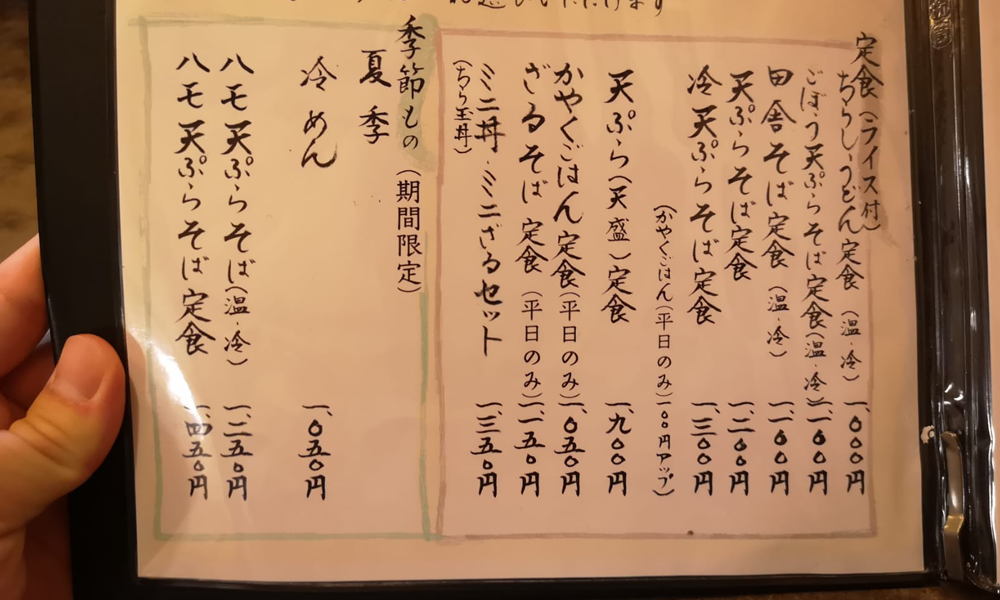 定食(ライス付)
ちらし・うどん定食(温・冷)一、〇〇〇円
ごぼう天ぷらそば定食(温・冷)一、一〇〇円
田舎そば定食(温・冷)一、一〇〇円
天ぷらそば定食 一、二〇〇円
冷天ぷらそば定食 一、三〇〇円
(かやくごはん(平日のみ)一〇〇円アップ)
天ぷら(天盛)定食 一、九〇〇円
かやくごはん定食(平日のみ)一、〇五〇円
ざるそば定食(平日のみ)一、一五〇円
ミニ丼・ミニざるセット 一、三五〇円
(ちらし玉丼)
季節もの(期間限定)
夏季
冷めん 一、〇五〇円
ハモ天ぷらそば(温・冷)一、二五〇円
ハモ天ぷらそば定食 一、四五〇円